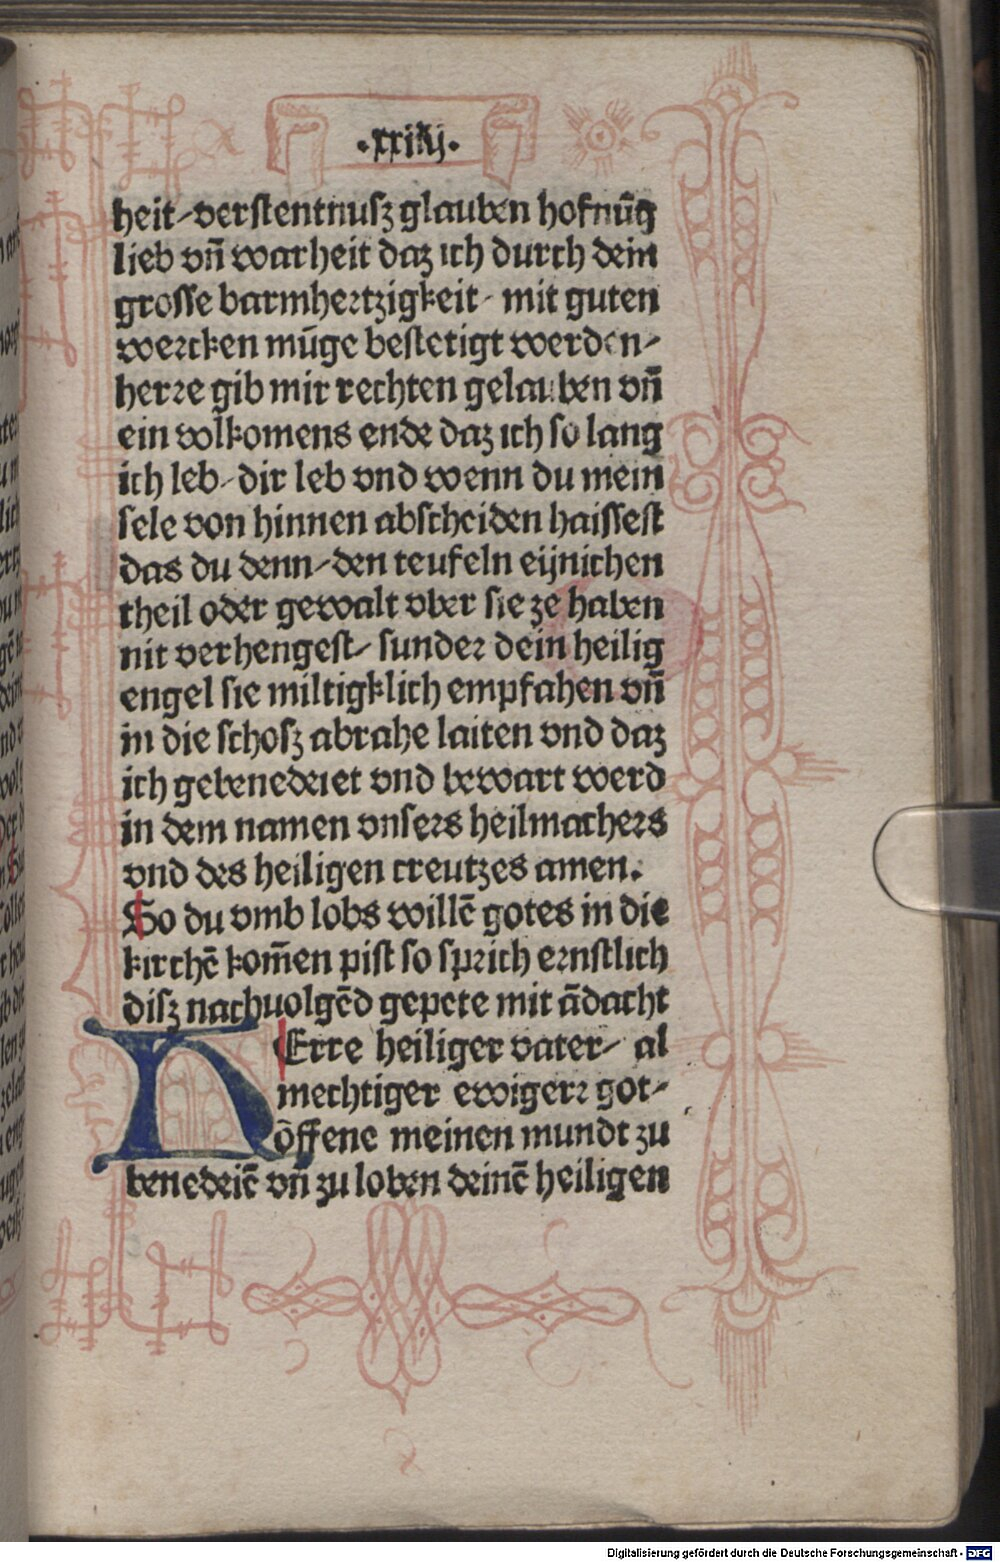 heit-verstentnusz glauben hofnūg
lieb vn̄ warheit daz ich durch dein
grosse barmhertzigkeit- mit guten
wercken müge bestetigt werden-
herre gib mir rechten gelauben vn̄
ein volkomens ende daz ich so lang
ich leb-dir leb vnd wenn du mein
sele von hinnen abscheiden haissest
das du denn-den teufeln eijnichen
theil oder gewalt vber sie ze haben
nit verhengest- sunder dein heilig
engel sie miltigklich empfahen vn̄
in die schosz abrahe laiten vnd daz
ich gebenedeiet vnd bewart werd
in dem namen vnsers heilmachers
vnd des heiligen creutzes amen.
So du vmb lobs willē gotes in die
kirchē kom̄en pist so sprich ernstlich
disz nachuolgēd gepete mit ādacht
HErre heiliger vater- al
mechtiger ewigerr got-
öffene meinen mundt zu
benedeiē vn̄ zu loben deinē heiligen
Digitalisierung gefördert durch die Deutsche Forschungsgemeinschaft - DFG